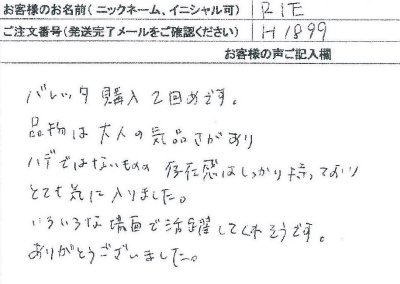 お客様のお名前(ニックネーム、イニシャル可) RIE
ご注文番号(発送完了メールをご確認ください) H1899
お客様の声ご記入欄
バレッタ購入2回めです。
品物は大人の気品さがあり
ハデではないものの 存在感はしっかり持っており
とても気に入りました。
いろいろな場面で活躍してくれそうです。
ありがとうございました。